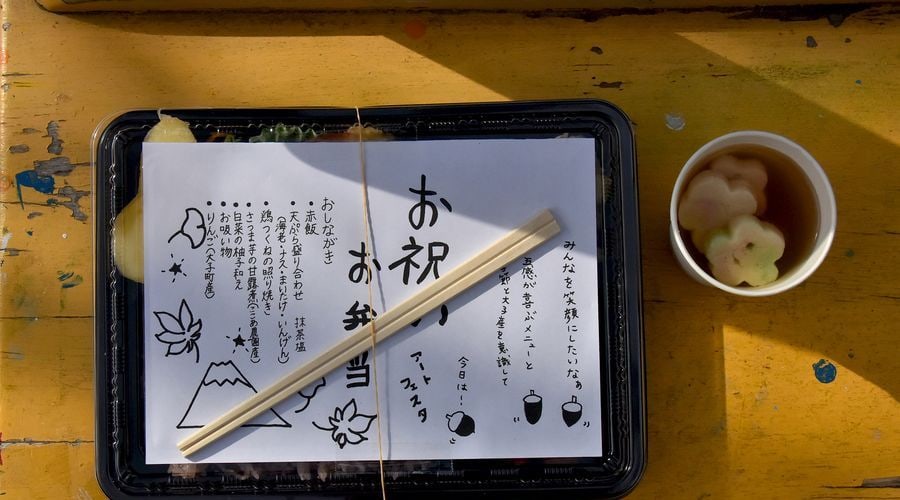 みんなを笑顔にしたいなぁ
五感が喜ぶメニューと
節と大子産を意識して
今日は…
アート
フェスタ
お祝い
お弁当
おしながき
・赤飯
・天ぷら盛り合わせ 抹茶塩
(海老・ナス・まいたけ・いんげん)
・鶏つくねの照り焼き
・さつま芋の甘露煮
・白菜の柚子和え
・お吸い物
・りんご(大子町産)